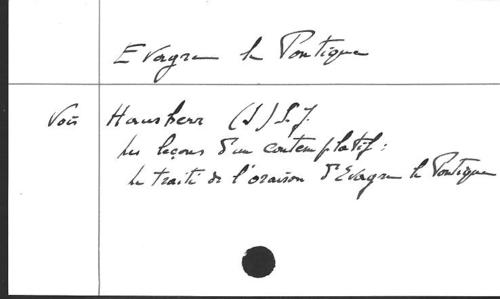 Evagre le Pontique
Voir Hausherr (I) S.J.
Les leçons d'un contemplatif:
Le traité de l'oraison d'Evagre le Pontique